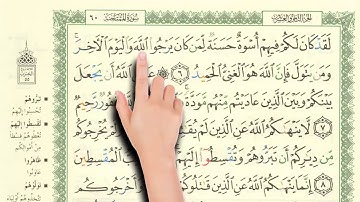 سورة الممتحنة ٦٠
لَقَدْ كَانَ لَكُمْ فِيهِمْ أُسْوَةٌ حَسَنَةٌ لِّمَن كَانَ يَرْجُوا۟ ٱللَّهَ وَٱلْيَوْمَ ٱلْـَٔاخِرَ ۚ
وَمَن يَتَوَلَّ فَإِنَّ ٱللَّهَ هُوَ ٱلْغَنِىُّ ٱلْحَمِيدُ ٦ ٱللَّهُ أَن يَجْعَلَ
بَيْنَكُمْ وَبَيْنَ ٱلَّذِينَ عَادَيْتُم مِّنْهُم مَّوَدَّةً رَّحِيمٌ
٧ لَّا يَنْهَىٰكُمُ ٱللَّهُ عَنِ ٱلَّذِينَ لَمْ يُخْرِجُوكُم
مِّن دِيَـٰرِكُمْ أَن تَبَرُّوهُمْ وَتُقْسِطُوٓا۟ إِلَيْهِمْ ٱلْمُقْسِطِينَ
٨ إِنَّمَا يَنْهَىٰكُمُ ٱللَّهُ عَنِ ٱلَّذِينَ قَـٰتَلُوكُمْ أَخْرَجُوكُم
تَبَرُّوهُمْ
تُقْسِطُوا إِلَيْهِمْ
ظَاهَرُوا
تَوَلَّوْهُمْ